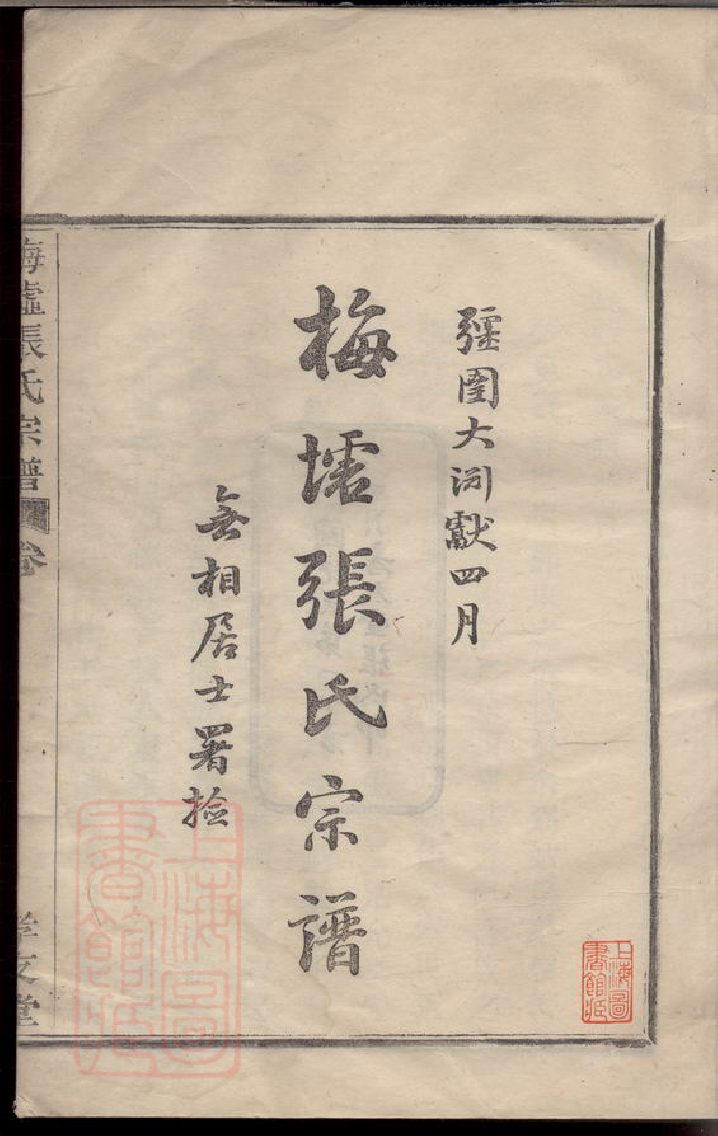 彊圉大渊獻四月
梅墟張氏宗譜
無相居士署檢
梅墟張氏宗譜
卷
孝友堂
上海圖書館藏
上海圖書館藏